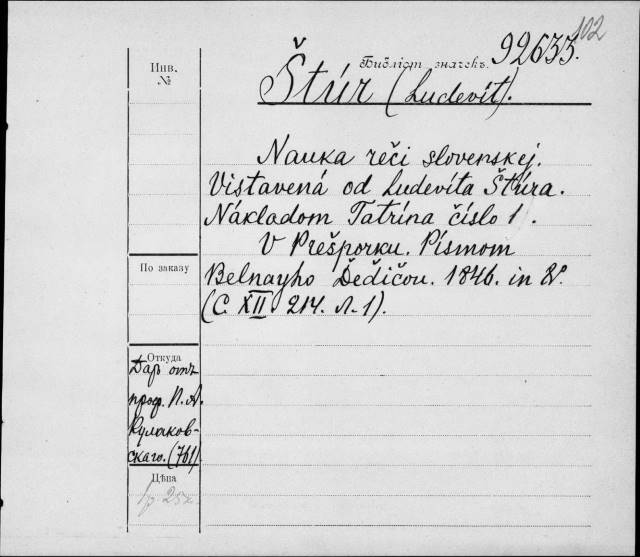 102
Инв.
№
Библіот. значекъ.
92633.
Štúr (Ludevít).
Nauka reči slovenskej.
Vistavená od Ludevíta Štúra.
Nákladom Tatrína číslo 1.
V Prešporku. Písmom
Belnayho Ďeďičou. 1846. in 8º.
(С. XII 214. л. 1).
По заказу
Откуда
Даръ отъ
проф. П. А.
Кулаков-
скаго. (761).
Цѣна
1 р. 25 к.